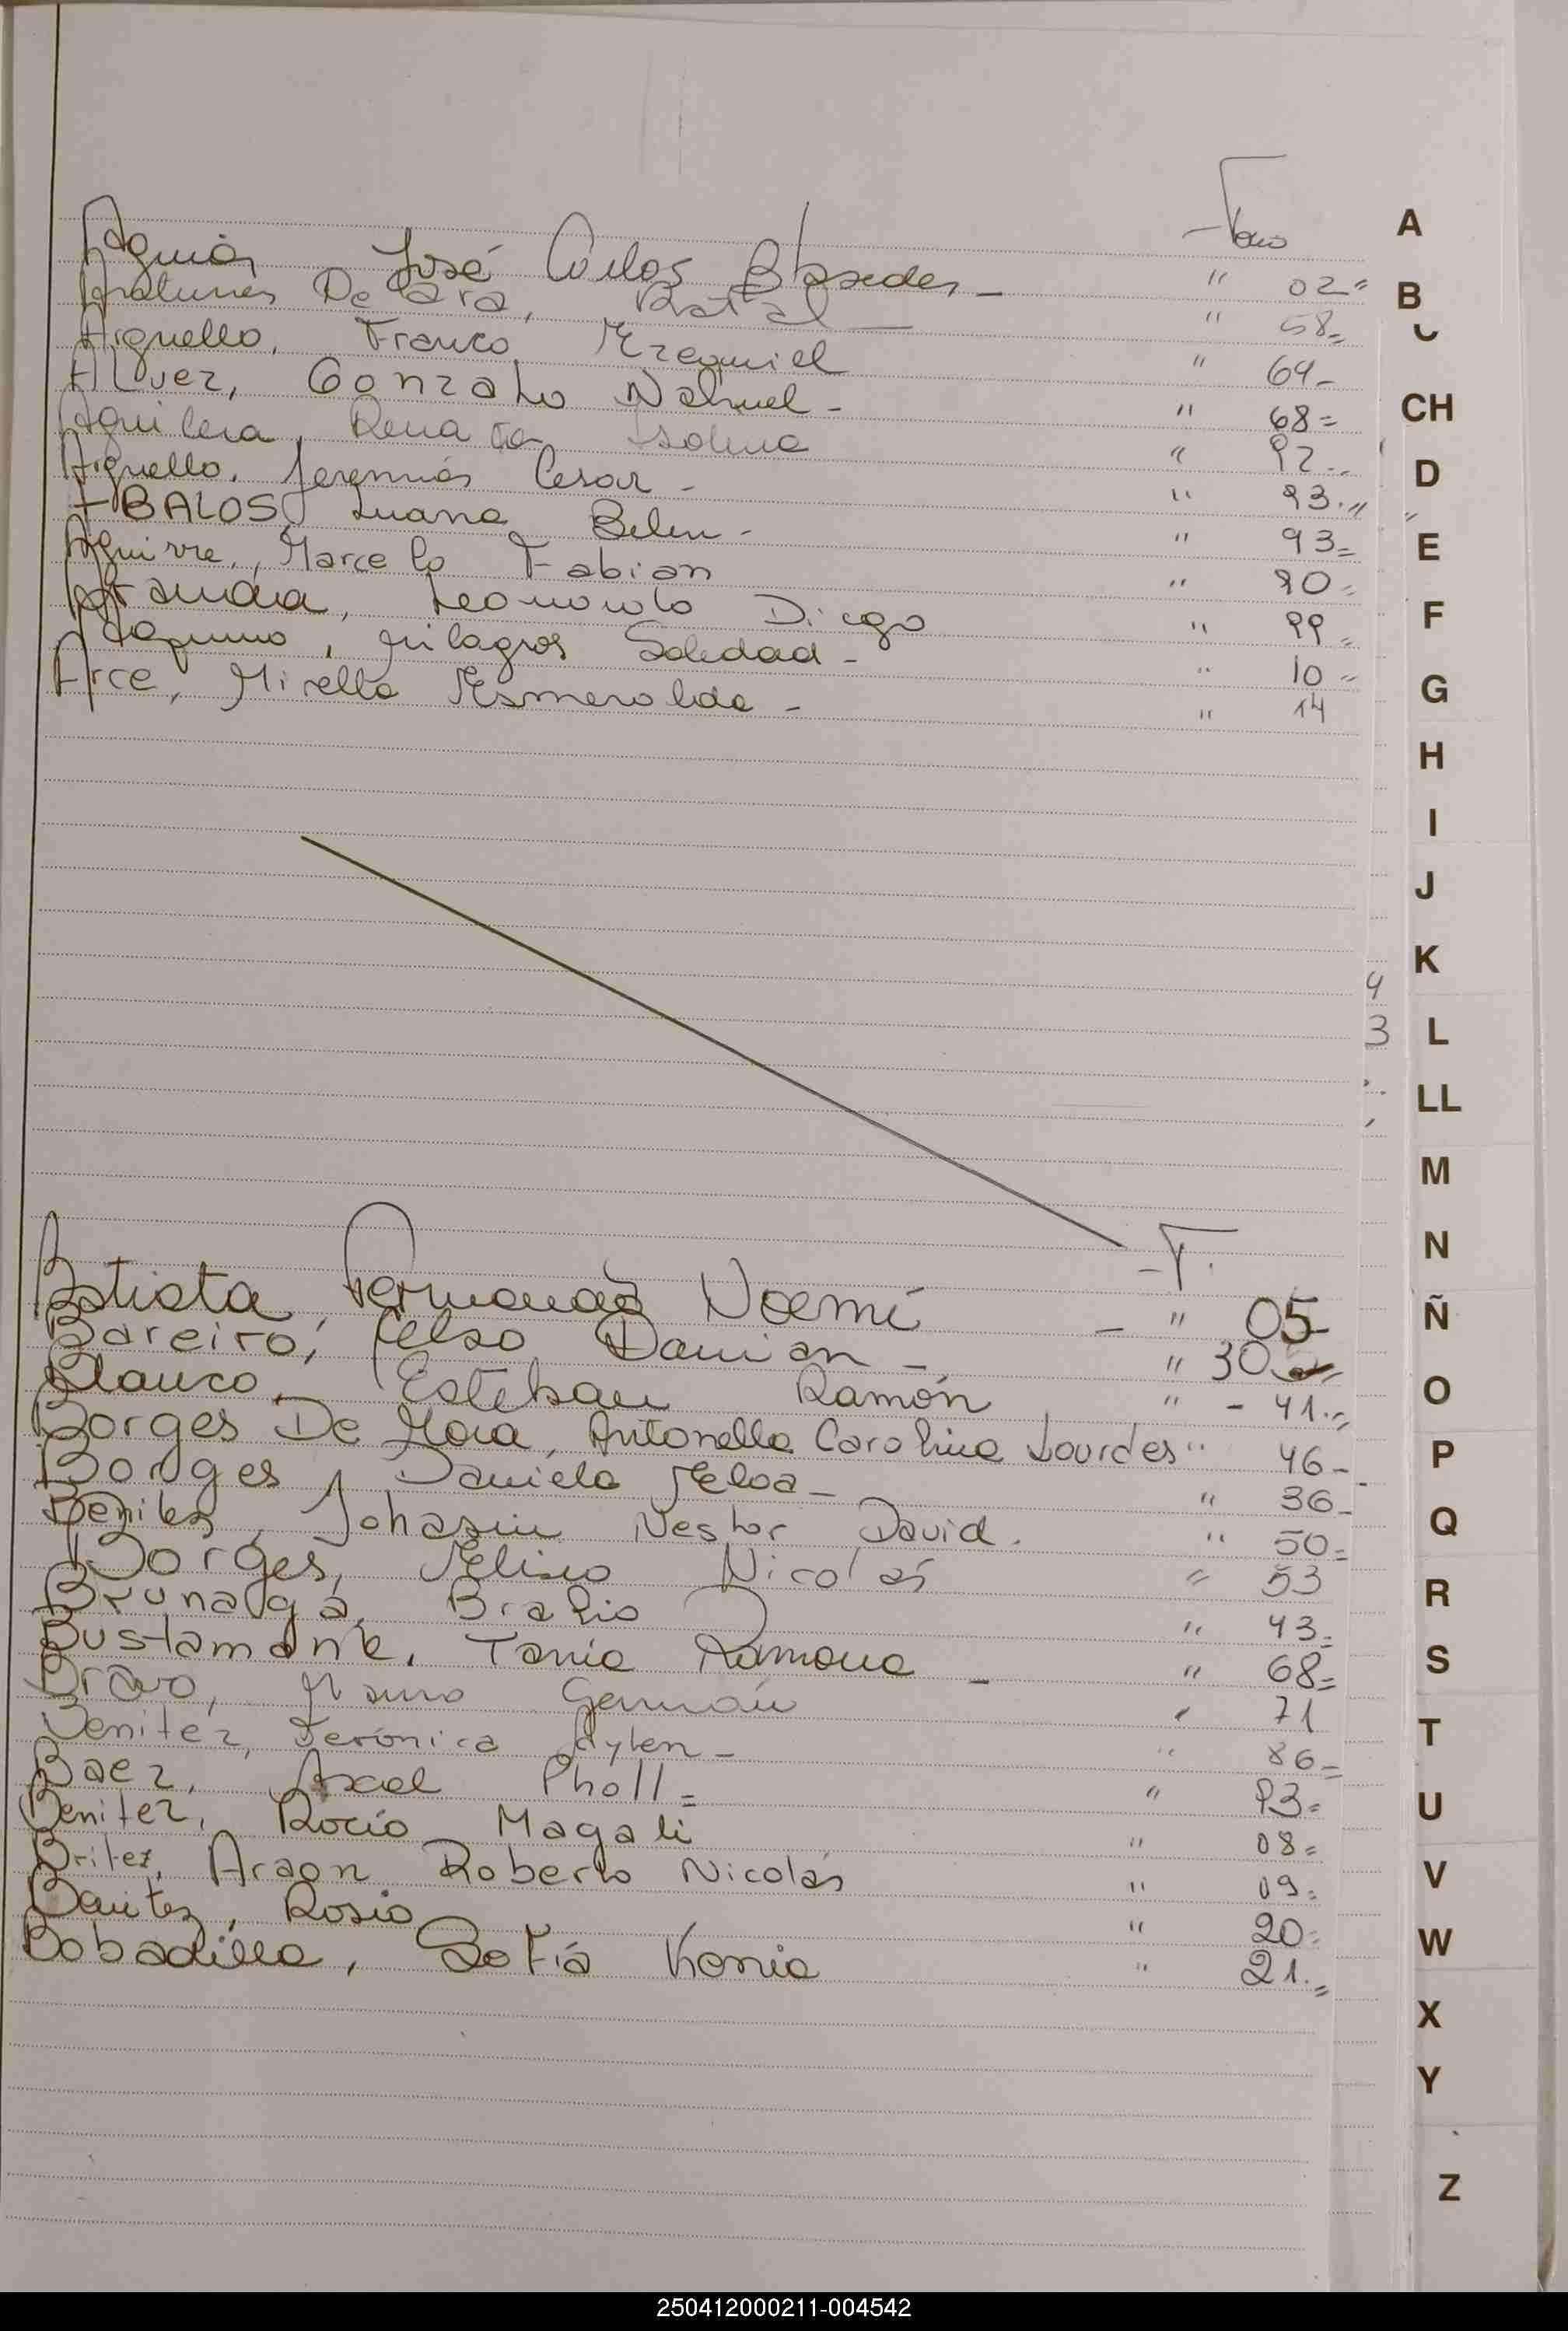 Folio
José Carlos " 02=
De Lara, " 58=
Arguello, Franco Ezequiel " 64-
ALvez, Gonzalo Nahuel - " 68=
Aguilera, Renata Isolina " 92-
Arguello, Jeremías Cesar - " 93.,,
ABALOS, Luana Belen - " 93=
Aguirre, Marcelo Fabian " 90=
Leonardo Diego " 99=
Aquino, Milagros Soledad - " 10=
Arce, Mirella Esmeralda - " 14
F.
Batista, Fernanda Noemí - " 05-
Bareiro, Celso Damian - " 30
Blanco, Esteban Ramón " - 41.,,
Borges De Mora, Antonella Carolina Lourdes " 46-
Borges, Daniela Eloa - " 36-
Benitez, Nestor David. " 50=
Borges, Eliseo Nicolás " 53
Brunaga, Brahio " 43=
Bustamante, Tania Ramona - " 68=
Bravo, Mauro Germán " 71
Benitez, Verónica Aylen - " 86=
Baez, Axel Pholl = " 93=
Benitez, Rocío Magali " 08=
Britez, Araon Roberto Nicolás " 09=
Benitez, Rosio " 20=
Bobadilla, Sofía Kania " 21.=
A
B
CH
D
E
F
G
H
I
J
K
4
3
L
LL
M
N
Ñ
O
P
Q
R
S
T
U
V
W
X
Y
Z
250412000211-004542